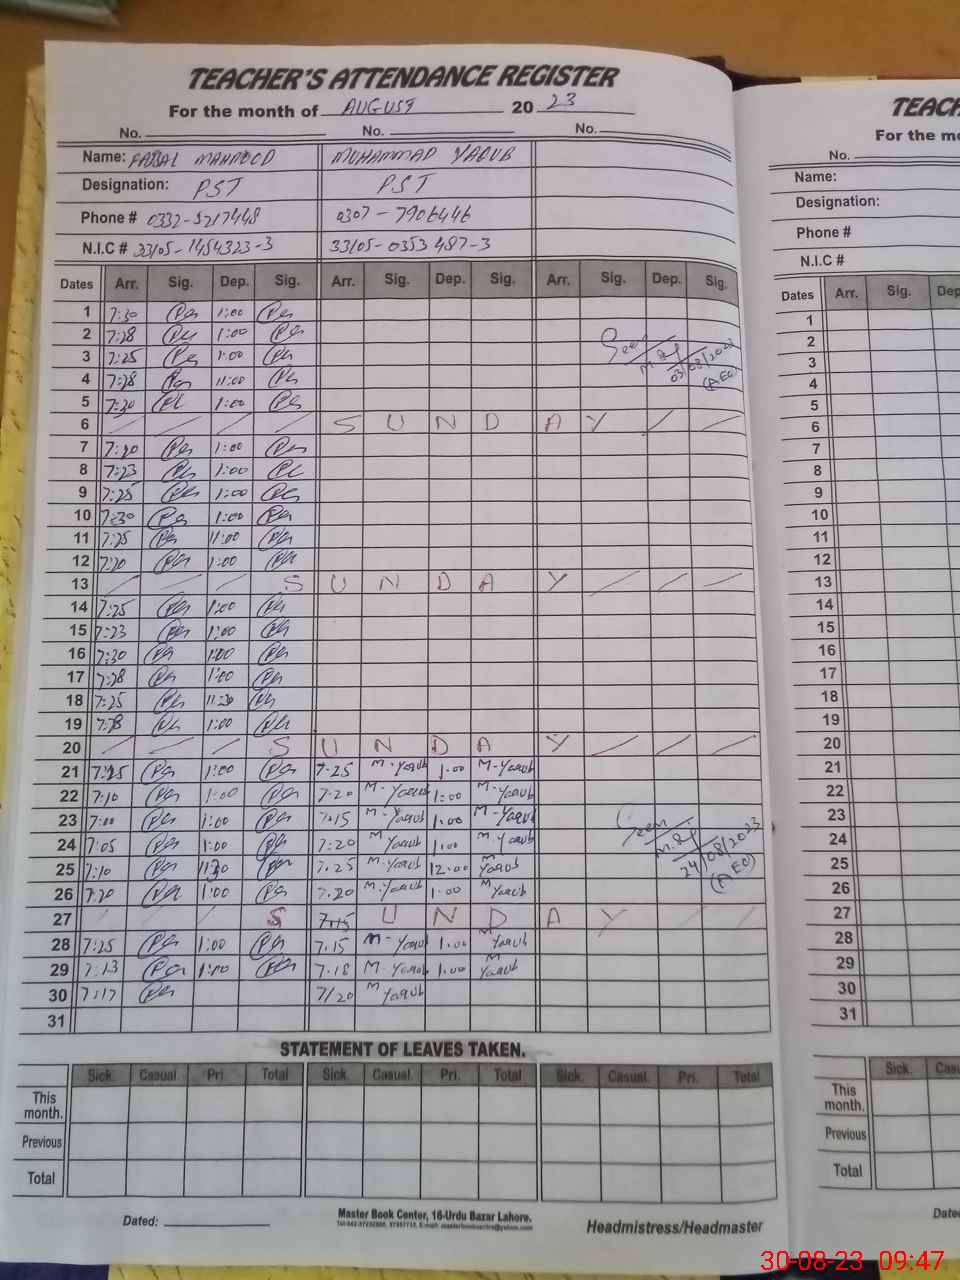 TEACHER'S ATTENDANCE REGISTER
For the month of AUGUST 2023
No. No. No.
Name: FAISAL MAHMOOD MUHAMMAD YAQUB
Designation: PST PST
Phone # 0332-5217448 0307-7906446
N.I.C # 33105-1454323-3 33105-0353487-3
Dates Arr. Sig. Dep. Sig. Arr. Sig. Dep. Sig. Arr. Sig. Dep. Sig.
1 7:30 1:00
2 7:28 1:00 Seen
3 7:25 1:00 03/08/2023
4 7:28 11:00 (AEO)
5 7:30 1:00
6 SUNDAY
7 7:20 1:00
8 7:23 1:00
9 7:25 1:00
10 7:30 1:00
11 7:25 11:00
12 7:20 1:00
13 SUNDAY
14 7:25 1:00
15 7:23 1:00
16 7:30 1:00
17 7:28 1:00
18 7:25 11:30
19 7:28 1:00
20 SUNDAY
21 7:25 1:00 7.25 M.Yaqub 1.00 M-Yaqub
22 7:10 1:00 7.20 M.Yaqub 1:00 M.Yaqub
23 7:00 1:00 7.15 M.Yaqub 1.00 M-Yaqub Seen
24 7:05 1:00 7:20 M Yaqub 1.00 M.Yaqub 24/08/2023
25 7:10 11:30 7.25 M.Yaqub 12.00 M Yaqub (AEO)
26 7:20 1:00 7.20 M.Yaqub 1.00 M Yaqub
27 S 7.15 UNDAY
28 7:25 1:00 7.15 M-Yaqub 1.00 M Yaqub
29 7:13 1:00 7.18 M.Yaqub 1.00 M Yaqub
30 7:17 7/20 M Yaqub
31
STATEMENT OF LEAVES TAKEN.
Sick. Casual Pri. Total Sick. Casual. Pri. Total Sick. Casual. Pri. Total
This month.
Previous
Total
Dated:
Master Book Center, 16-Urdu Bazar Lahore.
Headmistress/Headmaster
TEACH
For the mo
No.
Name:
Designation:
Phone #
N.I.C #
Dates Arr. Sig. Dep
1
2
3
4
5
6
7
8
9
10
11
12
13
14
15
16
17
18
19
20
21
22
23
24
25
26
27
28
29
30
31
Sick. Casu
This month.
Previous
Total
Dated
30-08-23 09:47